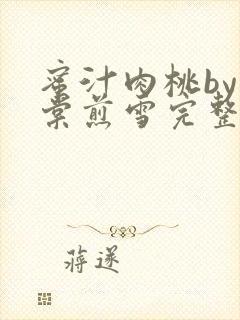 蜜汁肉桃by
棠煎雪完整
蒋遂